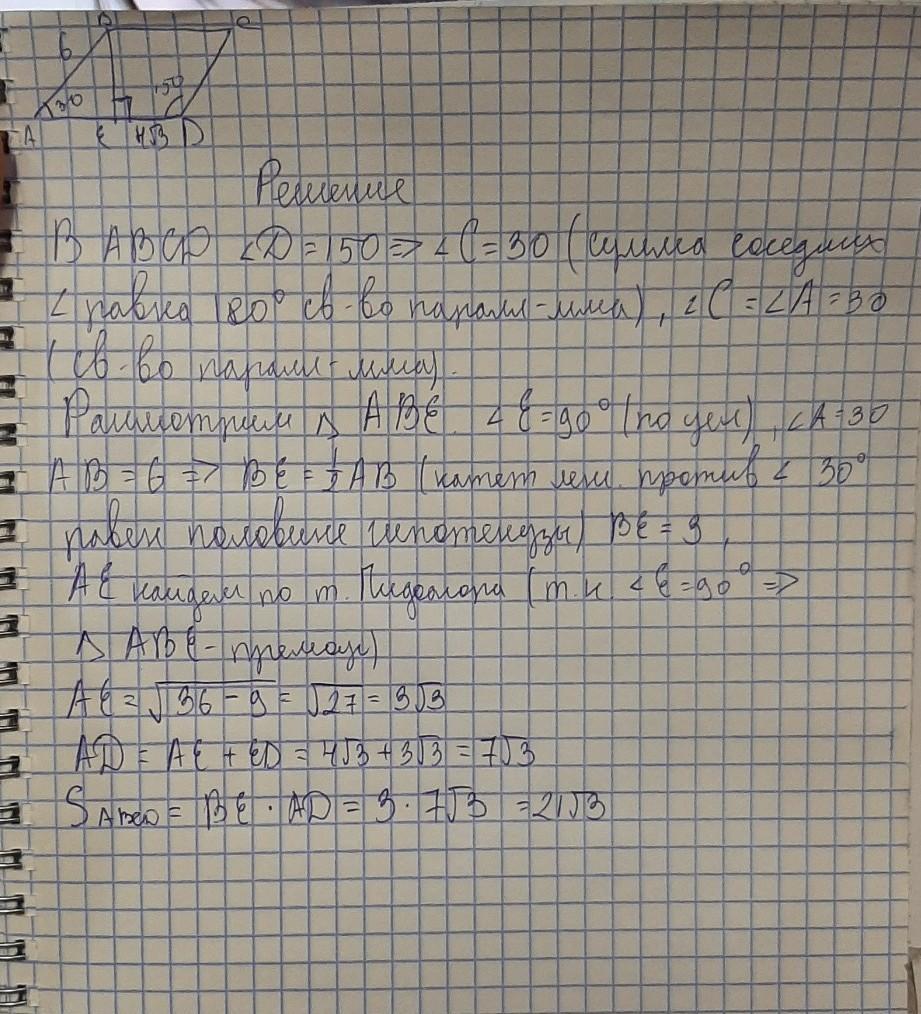 B C
6
30 150
A E 4√3 D
Решение
В ABCD ∠D = 150 => ∠C = 30 (сумма соседних
∠ равна 180° св-во паралл-мма), ∠C = ∠A = 30
(св-во паралл-мма).
Рассмотрим △ ABE. ∠E = 90° (по усл), ∠A = 30
AB = 6 => BE = ½ AB (катет леж. против ∠ 30°
равен половине гипотенузы) BE = 3,
AE найдем по т. Пифагора (т.к. ∠E = 90° =>
△ ABE - прямоуг)
AE = √36 - 9 = √27 = 3√3
AD = AE + ED = 4√3 + 3√3 = 7√3
S ABCD = BE · AD = 3 · 7√3 = 21√3